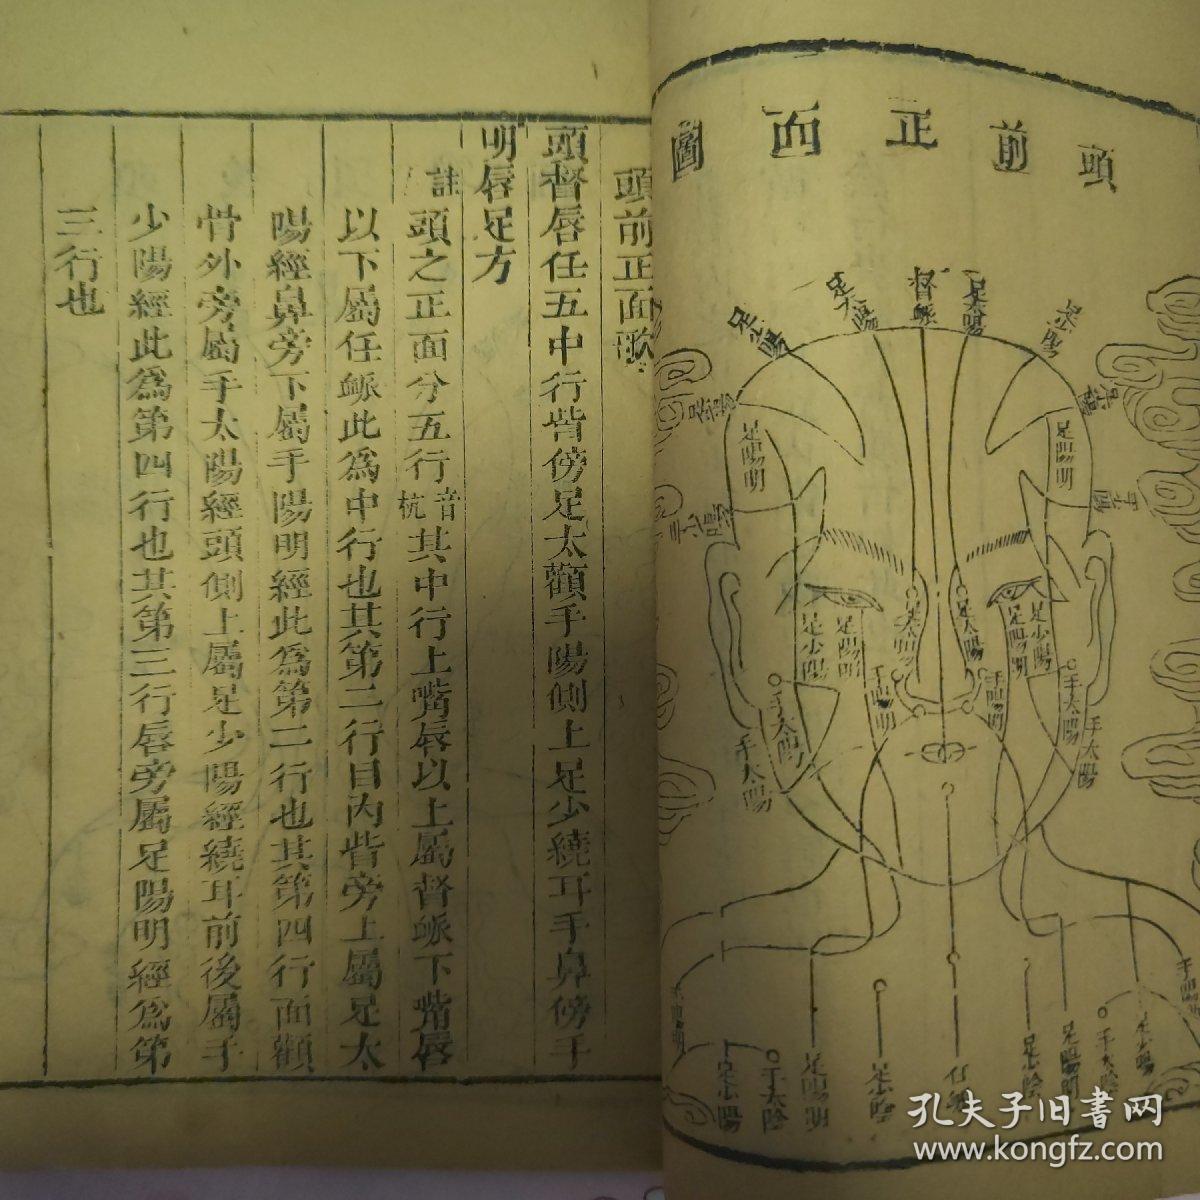 頭前正面圖
督脈
足太陽
足太陽
足少陽
足少陽
足陽明
足陽明
足太陽
足太陽
足陽明
足陽明
足少陽
足少陽
手陽明
手陽明
手太陽
手太陽
手太陽
手太陽
手陽明
足少陽
手太陰
足陽明
足少陰
任脈
足少陰
足陽明
手太陰
足少陽
頭前正面歌
頭督唇任五中行眥傍足太顴手陽側上足少繞耳手鼻傍手
明唇足方
註頭之正面分五行音杭其中行上嘴唇以上屬督脈下嘴唇
以下屬任脈此為中行也其第二行目內眥旁上屬足太
陽經鼻旁下屬手陽明經此為第二行也其第四行面顴
骨外旁屬手太陽經頭側上屬足少陽經繞耳前後屬手
少陽經此為第四行也其第三行唇旁屬足陽明經為第
三行也
孔夫子旧书网
www.kongfz.com